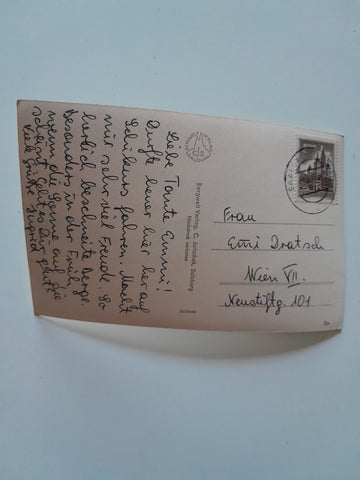 Liebe Tante Emmi!
Durfte heuer hier her auf
Schikurs fahren. Macht
mir sehr viel Freude. So
herrlich beschneite Berge.
Besonders in der Früh,
wenn die Sonne auf sie
scheint. Geht es Dir gut?
Viele Grüße Sigrid
Bergwelt Verlag, C. Jurischek, Salzburg
Nachdruck verboten
Frau
Emi Dratsch
Wien VII.
Neustiftg. 101